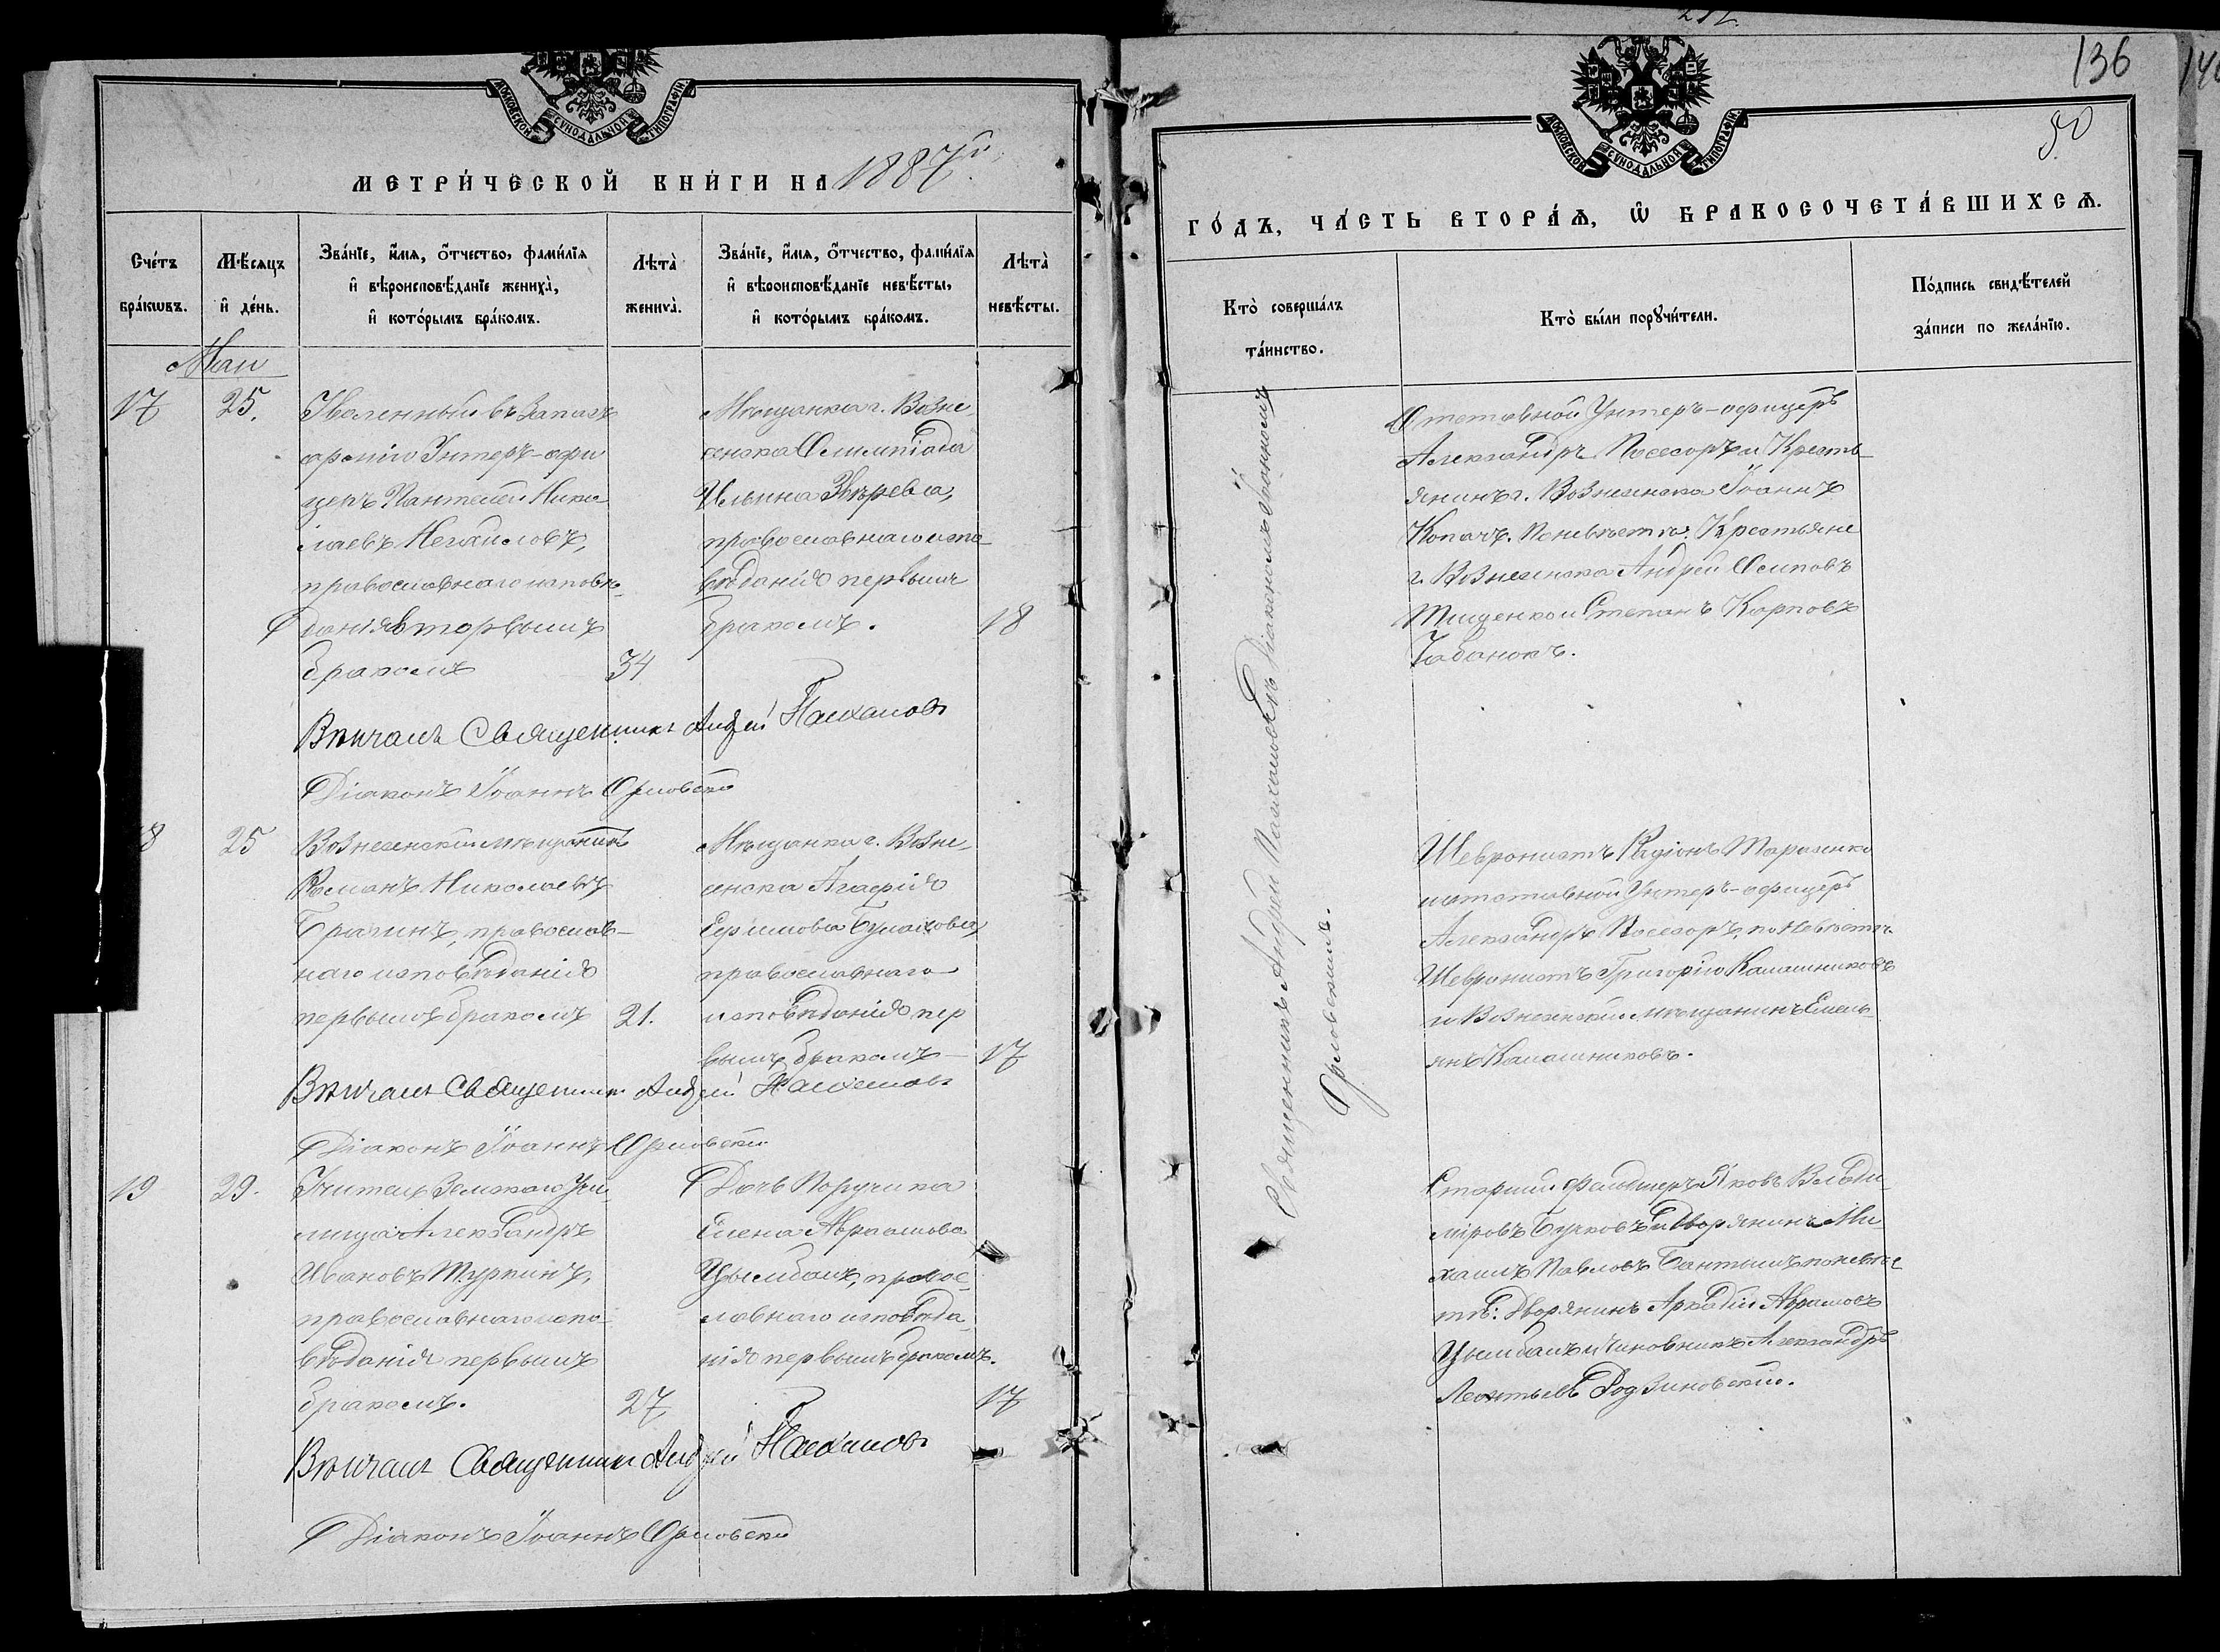 МОСКОВСКОЙ СѴНОДАЛЬНОЙ ТИПОГРАФІИ
МЕТРИ́ЧЕСКОЙ КНИ́ГИ НА 1887й
Сче́тъ бра́кѡвъ.
Мѣ́сяцъ и҆ де́нь.
Зва́нїе, и҆́мѧ, ѻ҆́тчество, фами́лїѧ
и҆ вѣроисповѣ́данїе жениха̀,
и҆ кото́рымъ бра́комъ.
Лѣта̀ жениха̀.
Зва́нїе, и҆́мѧ, ѻ҆́тчество, фами́лїѧ
и҆ вѣроисповѣ́данїе невѣ́сты,
и҆ кото́рымъ бра́комъ.
Лѣта̀ невѣ́сты.
Маи
17
25.
Уволенный въ запасъ
арміи Унтеръ-офи
церъ Пантелей Нико
лаевъ
православнаго исповѣ
данія вторымъ
бракомъ
34
Мѣщанка г. Возне
сенска Олимпіада
Ильина Звѣрева,
православнаго испо
вѣданія первымъ
бракомъ.
18
Вѣнчалъ Священникъ Андрей
Діаконъ Іоаннъ Орловскій
8
25
Вознесенскій мѣщанинъ
Романъ Николаевъ
Брагинъ, православ-
наго исповѣданія
первымъ бракомъ
21.
Мѣщанка г. Возне
сенска Агафія
Ефимова
православнаго
исповѣданія пер
вымъ бракомъ
17
Вѣнчалъ Священникъ Андрей
Діаконъ Іоаннъ Орловскій
19
29.
Учитель Земскаго Учи
лища Александръ
Ивановъ Туркинъ,
православнаго испо
вѣданія первымъ
бракомъ.
27
Дочь Поручика
Елена Абрамова
Цымбалъ, правос
лавнаго исповѣда
нія первымъ бракомъ.
17
Вѣнчалъ Священникъ Андрей
Діаконъ Іоаннъ Орловскій
136
МОСКОВСКОЙ СѴНОДАЛЬНОЙ ТИПОГРАФІИ
90
ГО́ДЪ, ЧА́СТЬ ВТОРА́Ѧ, Ѽ БРАКОСОЧЕТА́ВШИХСѦ.
Кто̀ соверша́лъ
та́инство.
Кто̀ бы́ли порꙋчи́тели.
По́дпись свидѣ́телей
за́писи по жела́нїю.
Священникъ Андрей съ Діакономъ Іоанномъ
Орловскимъ.
Отставной Унтеръ-офицеръ
Александръ Посесоръ и Кресть
янинъ г. Вознесенска Іоаннъ
Копачъ. По невѣстѣ: Крестьяне
г. Вознесенска Андрей Осиповъ
Тищенко и Степанъ Карповъ
Чабанокъ.
Шевронистъ Родіонъ Тарасенко
и отставной Унтеръ-офицеръ
Александръ Посесоръ, по невѣстѣ
Шевронистъ Григорій Калашниковъ
и Вознесенскій мѣщанинъ Емель
янъ Калашниковъ.
Старшій фельдшеръ Яковъ Влади
міровъ Бучковъ и Дворянинъ Ми
хаилъ Павловъ Бантышъ по невѣс
тѣ: Дворянинъ Аркадій Абрамовъ
Цымбалъ и Чиновникъ Александръ
Леонтьевъ Родзиновскій.